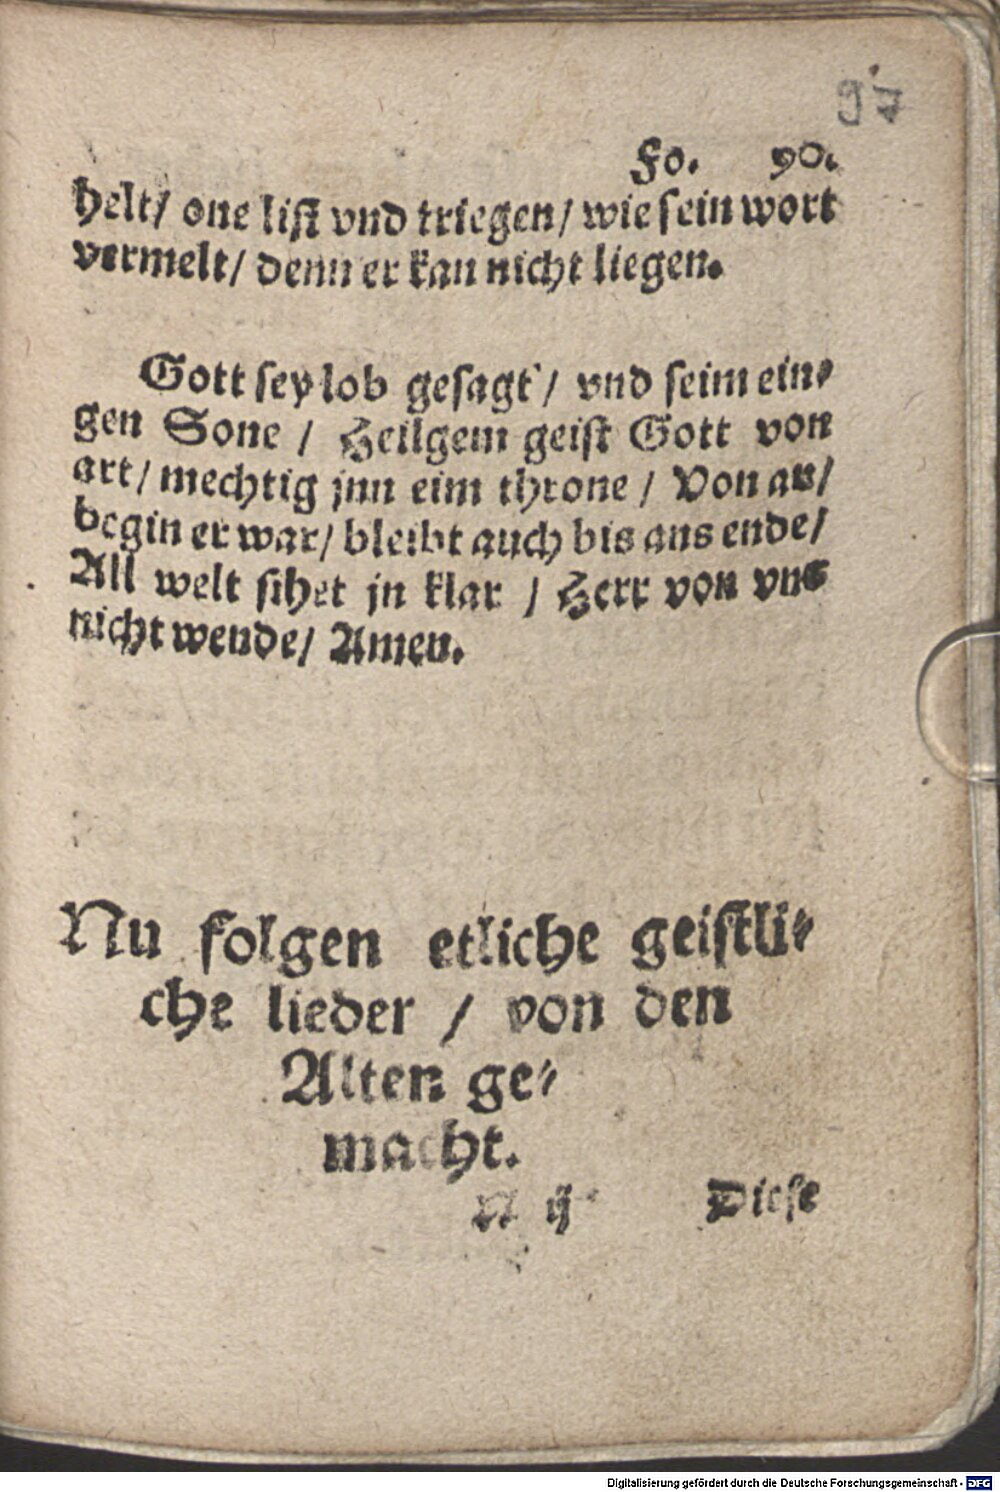 97
Fo. 90.
helt/ one list vnd triegen/ wie sein wort
vermelt/ denn er kan nicht liegen.
Gott sey lob gesagt/ vnd seim ein⸗
gen Sone / Heilgem geist Gott von
art/ mechtig jnn eim throne / Von an/
begin er war/ bleibt auch bis ans ende/
All welt sihet jn klar / Herr von vns
nicht wende/ Amen.
Nu folgen etliche geistli⸗
che lieder / von den
Alten ge⸗
macht.
N ij Diese
Digitalisierung gefördert durch die Deutsche Forschungsgemeinschaft - DFG